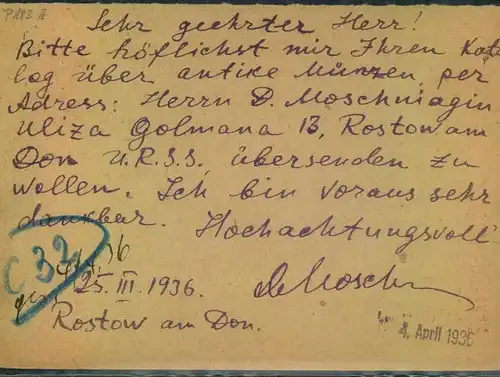 P 183 A
Sehr geehrter Herr!
Bitte höflichst mir Ihren Kata
log über antike Münzen per
Adress: Herrn D. Moschniagin
Uliza Golmana 13, Rostow am
Don U.R.S.S. übersenden zu
wollen. Ich bin voraus sehr
dankbar. Hochachtungsvoll
C 32
25. III. 1936. DeMosch
Rostow am Don.
4. April 1936